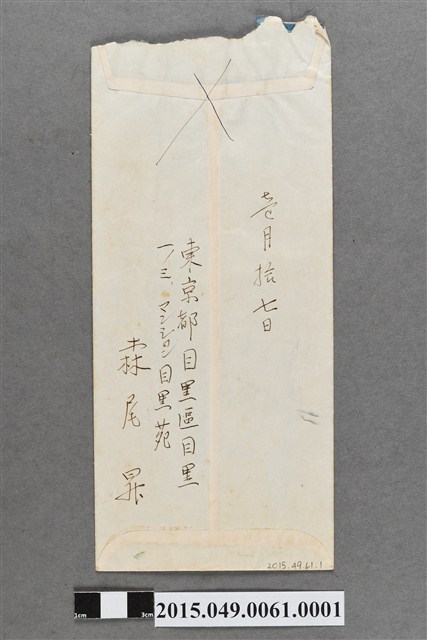 壱月拾七日
東京都目黒區目黒
一ノ三、マンション目黒苑
森尾昇
2015.49.61.1
1cm 3cm
2015.049.0061.0001